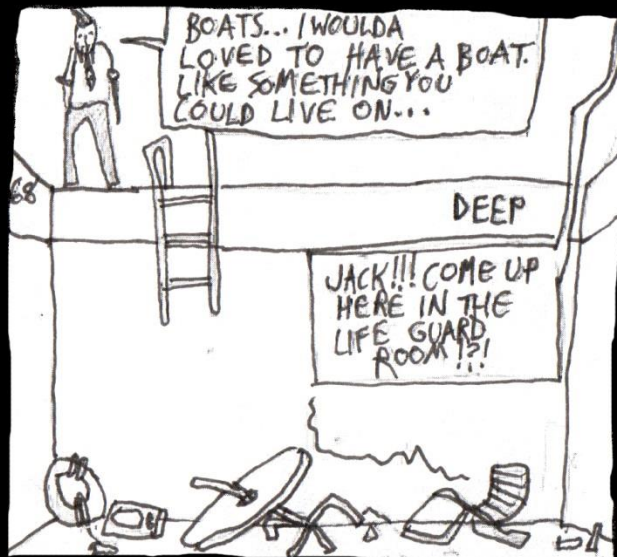 BOATS... I WOULDA
LOVED TO HAVE A BOAT.
LIKE SOMETHING YOU
COULD LIVE ON...
68
DEEP
JACK!!! COME UP
HERE IN THE
LIFE GUARD
ROOM!?!